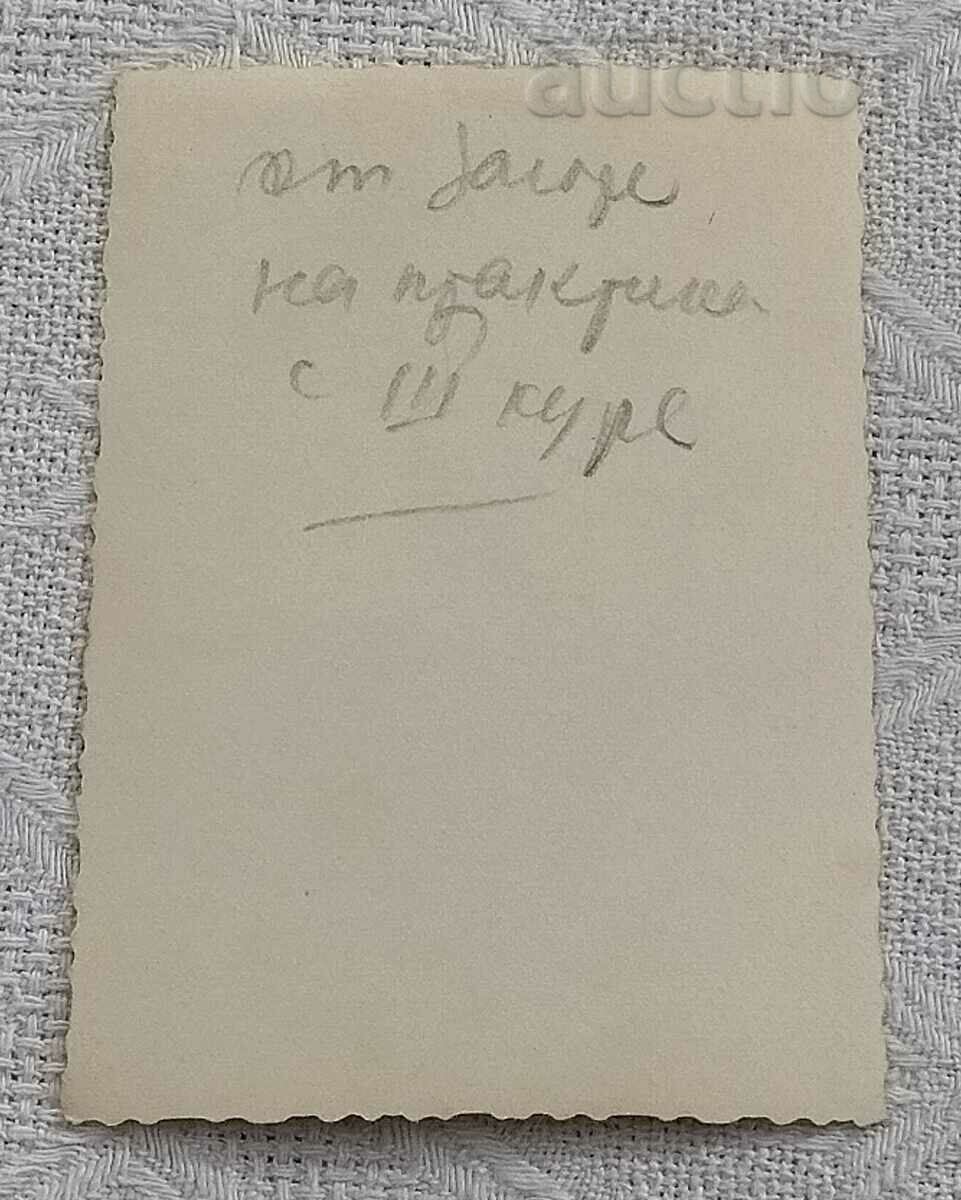 auctio
от
на практика
с III курс